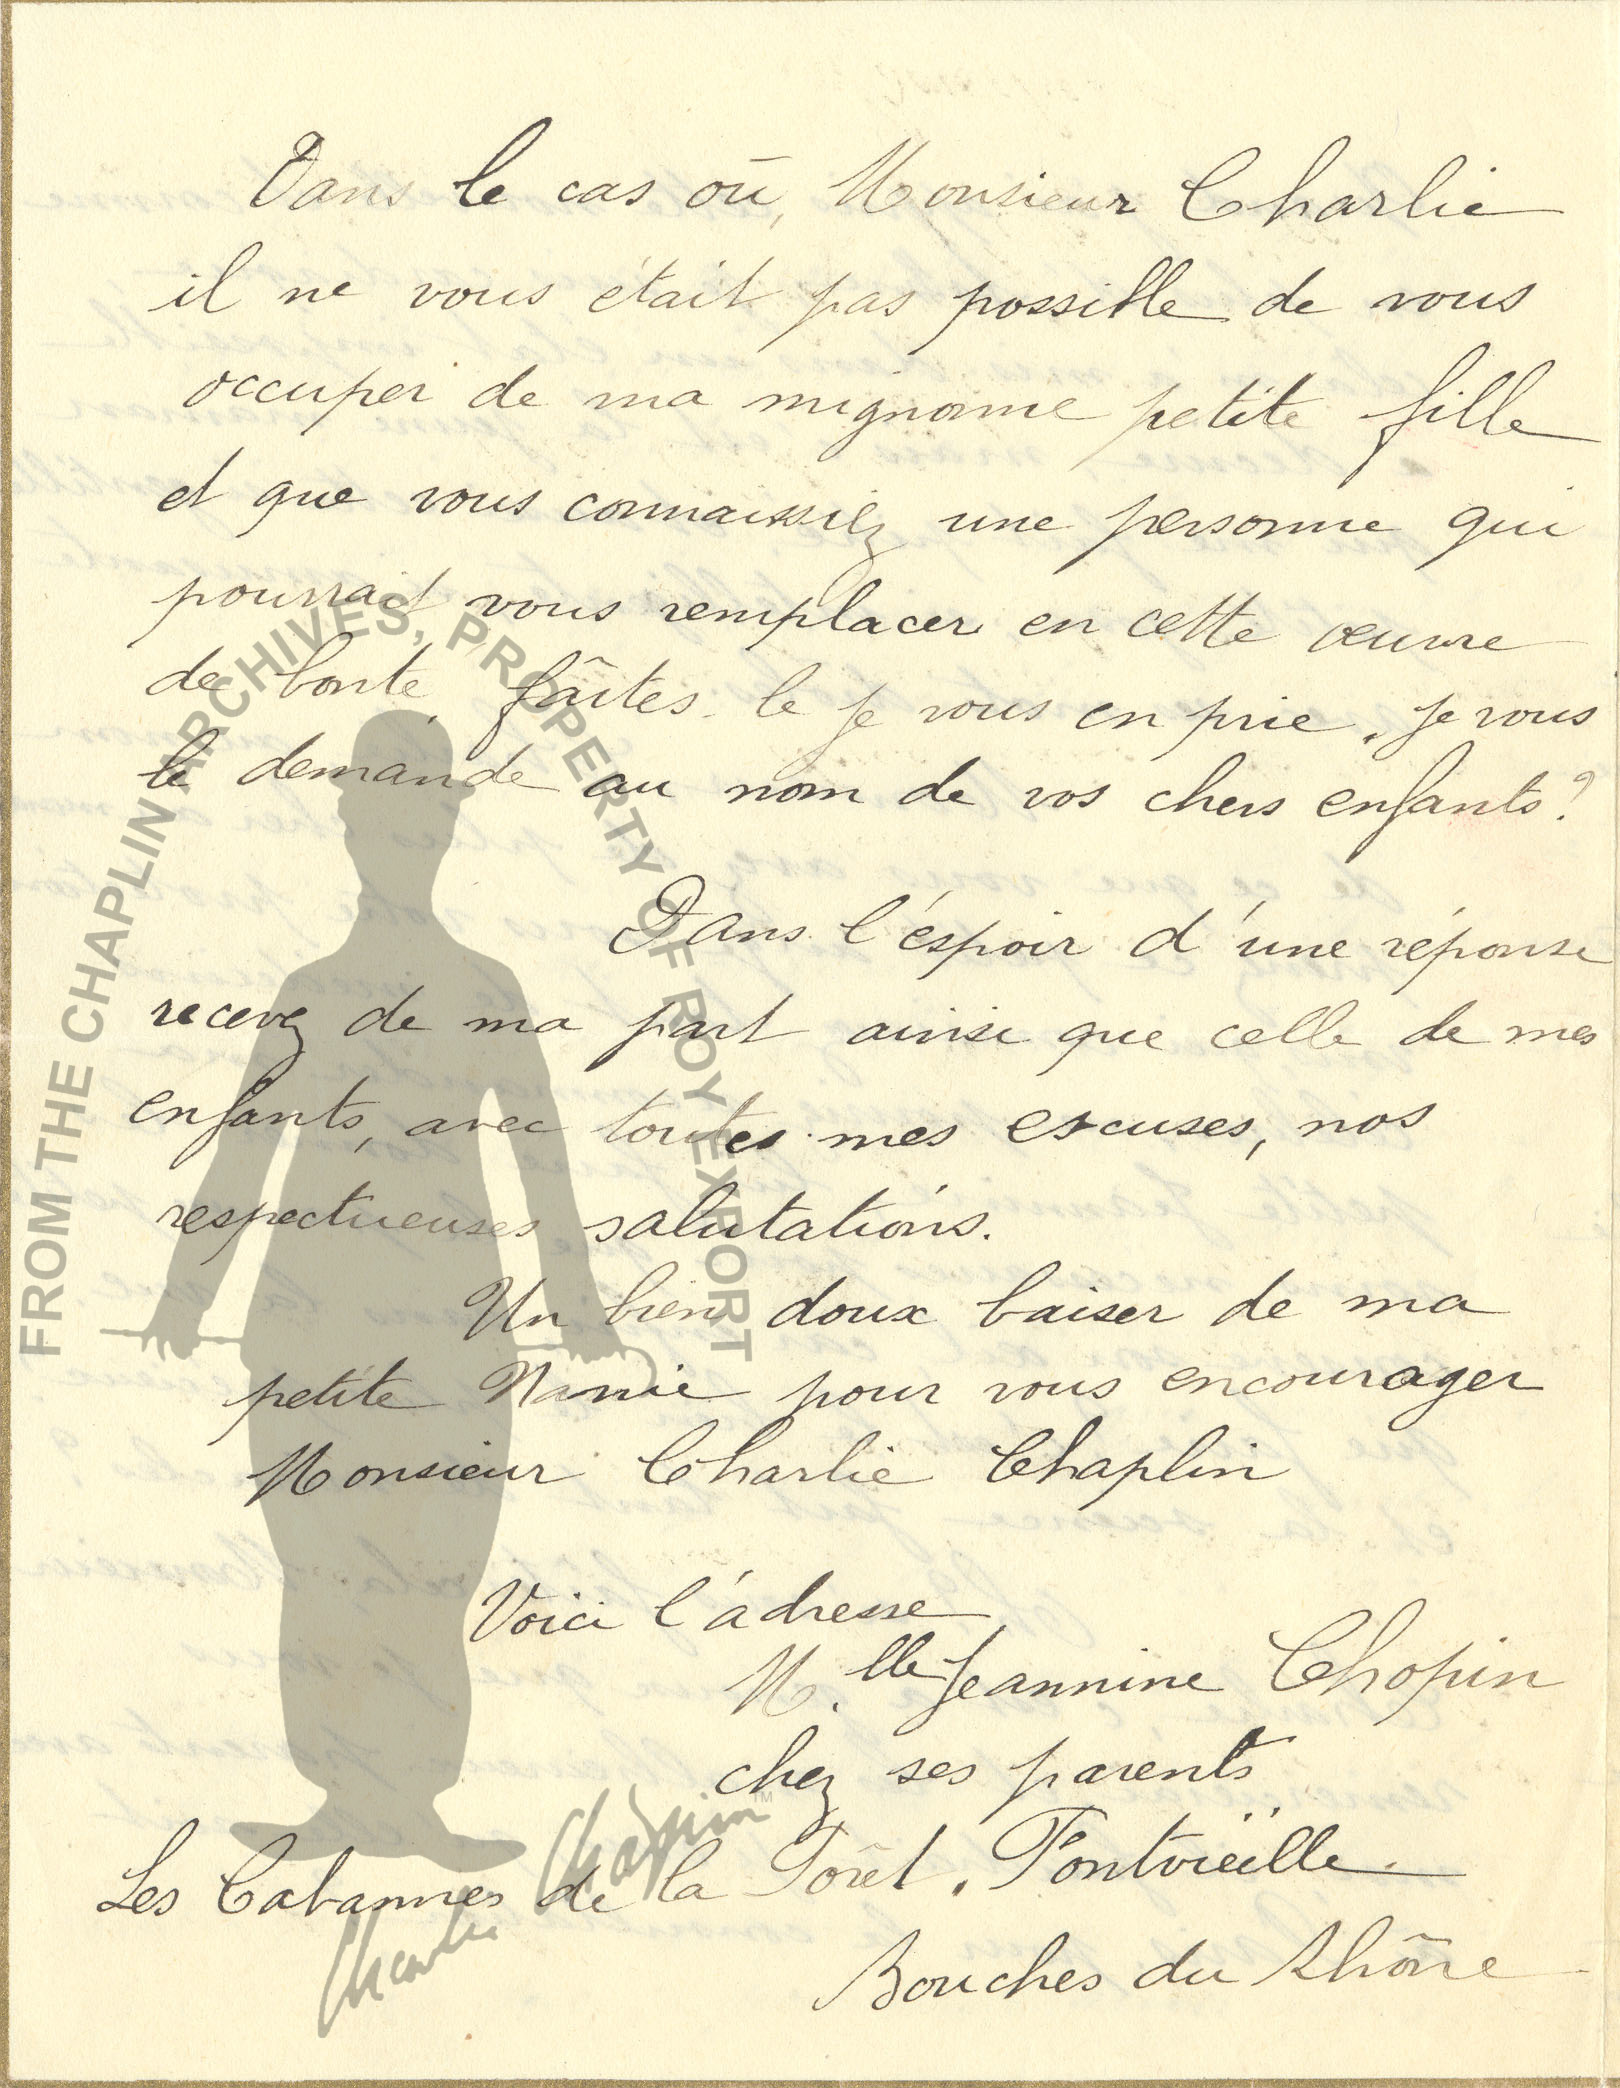 Dans le cas où, Monsieur Charlie
il ne vous était pas possible de vous
occuper de ma mignonne petite fille
et que vous connaissiez une personne qui
pourrait vous remplacer en cette œuvre
de bonté, fâites-le je vous en prie, je vous
le demande au nom de vos chers enfants?
Dans l'éspoir d'une réponse
recevez de ma part ainsi que celle de mes
enfants, avec toutes mes excuses, nos
respectueuses salutations.
Un bien doux baiser de ma
petite Nanie pour vous encourager
Monsieur Charlie Chaplin
Voici l'adresse
M.lle Jeannine Chopin
chez ses parents
Les Cabannes de la Forêt, Fontvieille.
Bouches du Rhône
FROM THE CHAPLIN ARCHIVES, PROPERTY OF ROY EXPORT
Charlie Chaplin™